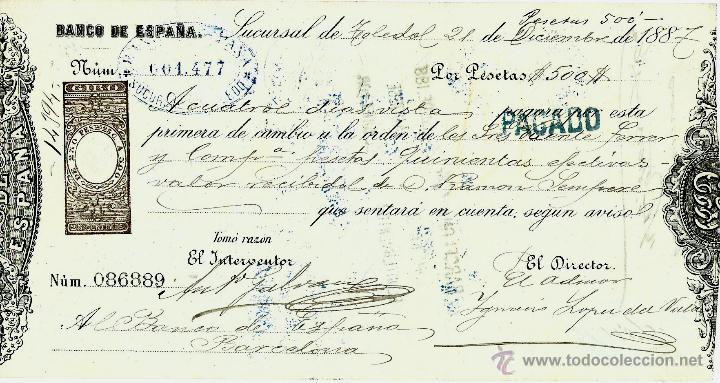 Pesetas 500
BANCO DE ESPAÑA. Sucursal de Toledo 21 de Diciembre de 1887
Núm. 001.477 Por Pesetas $500$
GIRO
A cuatro dias vista pagará esta
PAGADO
primera de cambio a la orden de los Sres Vicente Ferrer
y Compª pesetas Quinientas efectivas
valor recibido de D. Ramon Sempere
que sentará en cuenta, según aviso
Tomó razon
El Interventor
El Director.
Núm. 086889
El Admor
Ignacio Lopez del Valle
Al Banco de España
Barcelona
ESPAÑA
www.todocoleccion.net